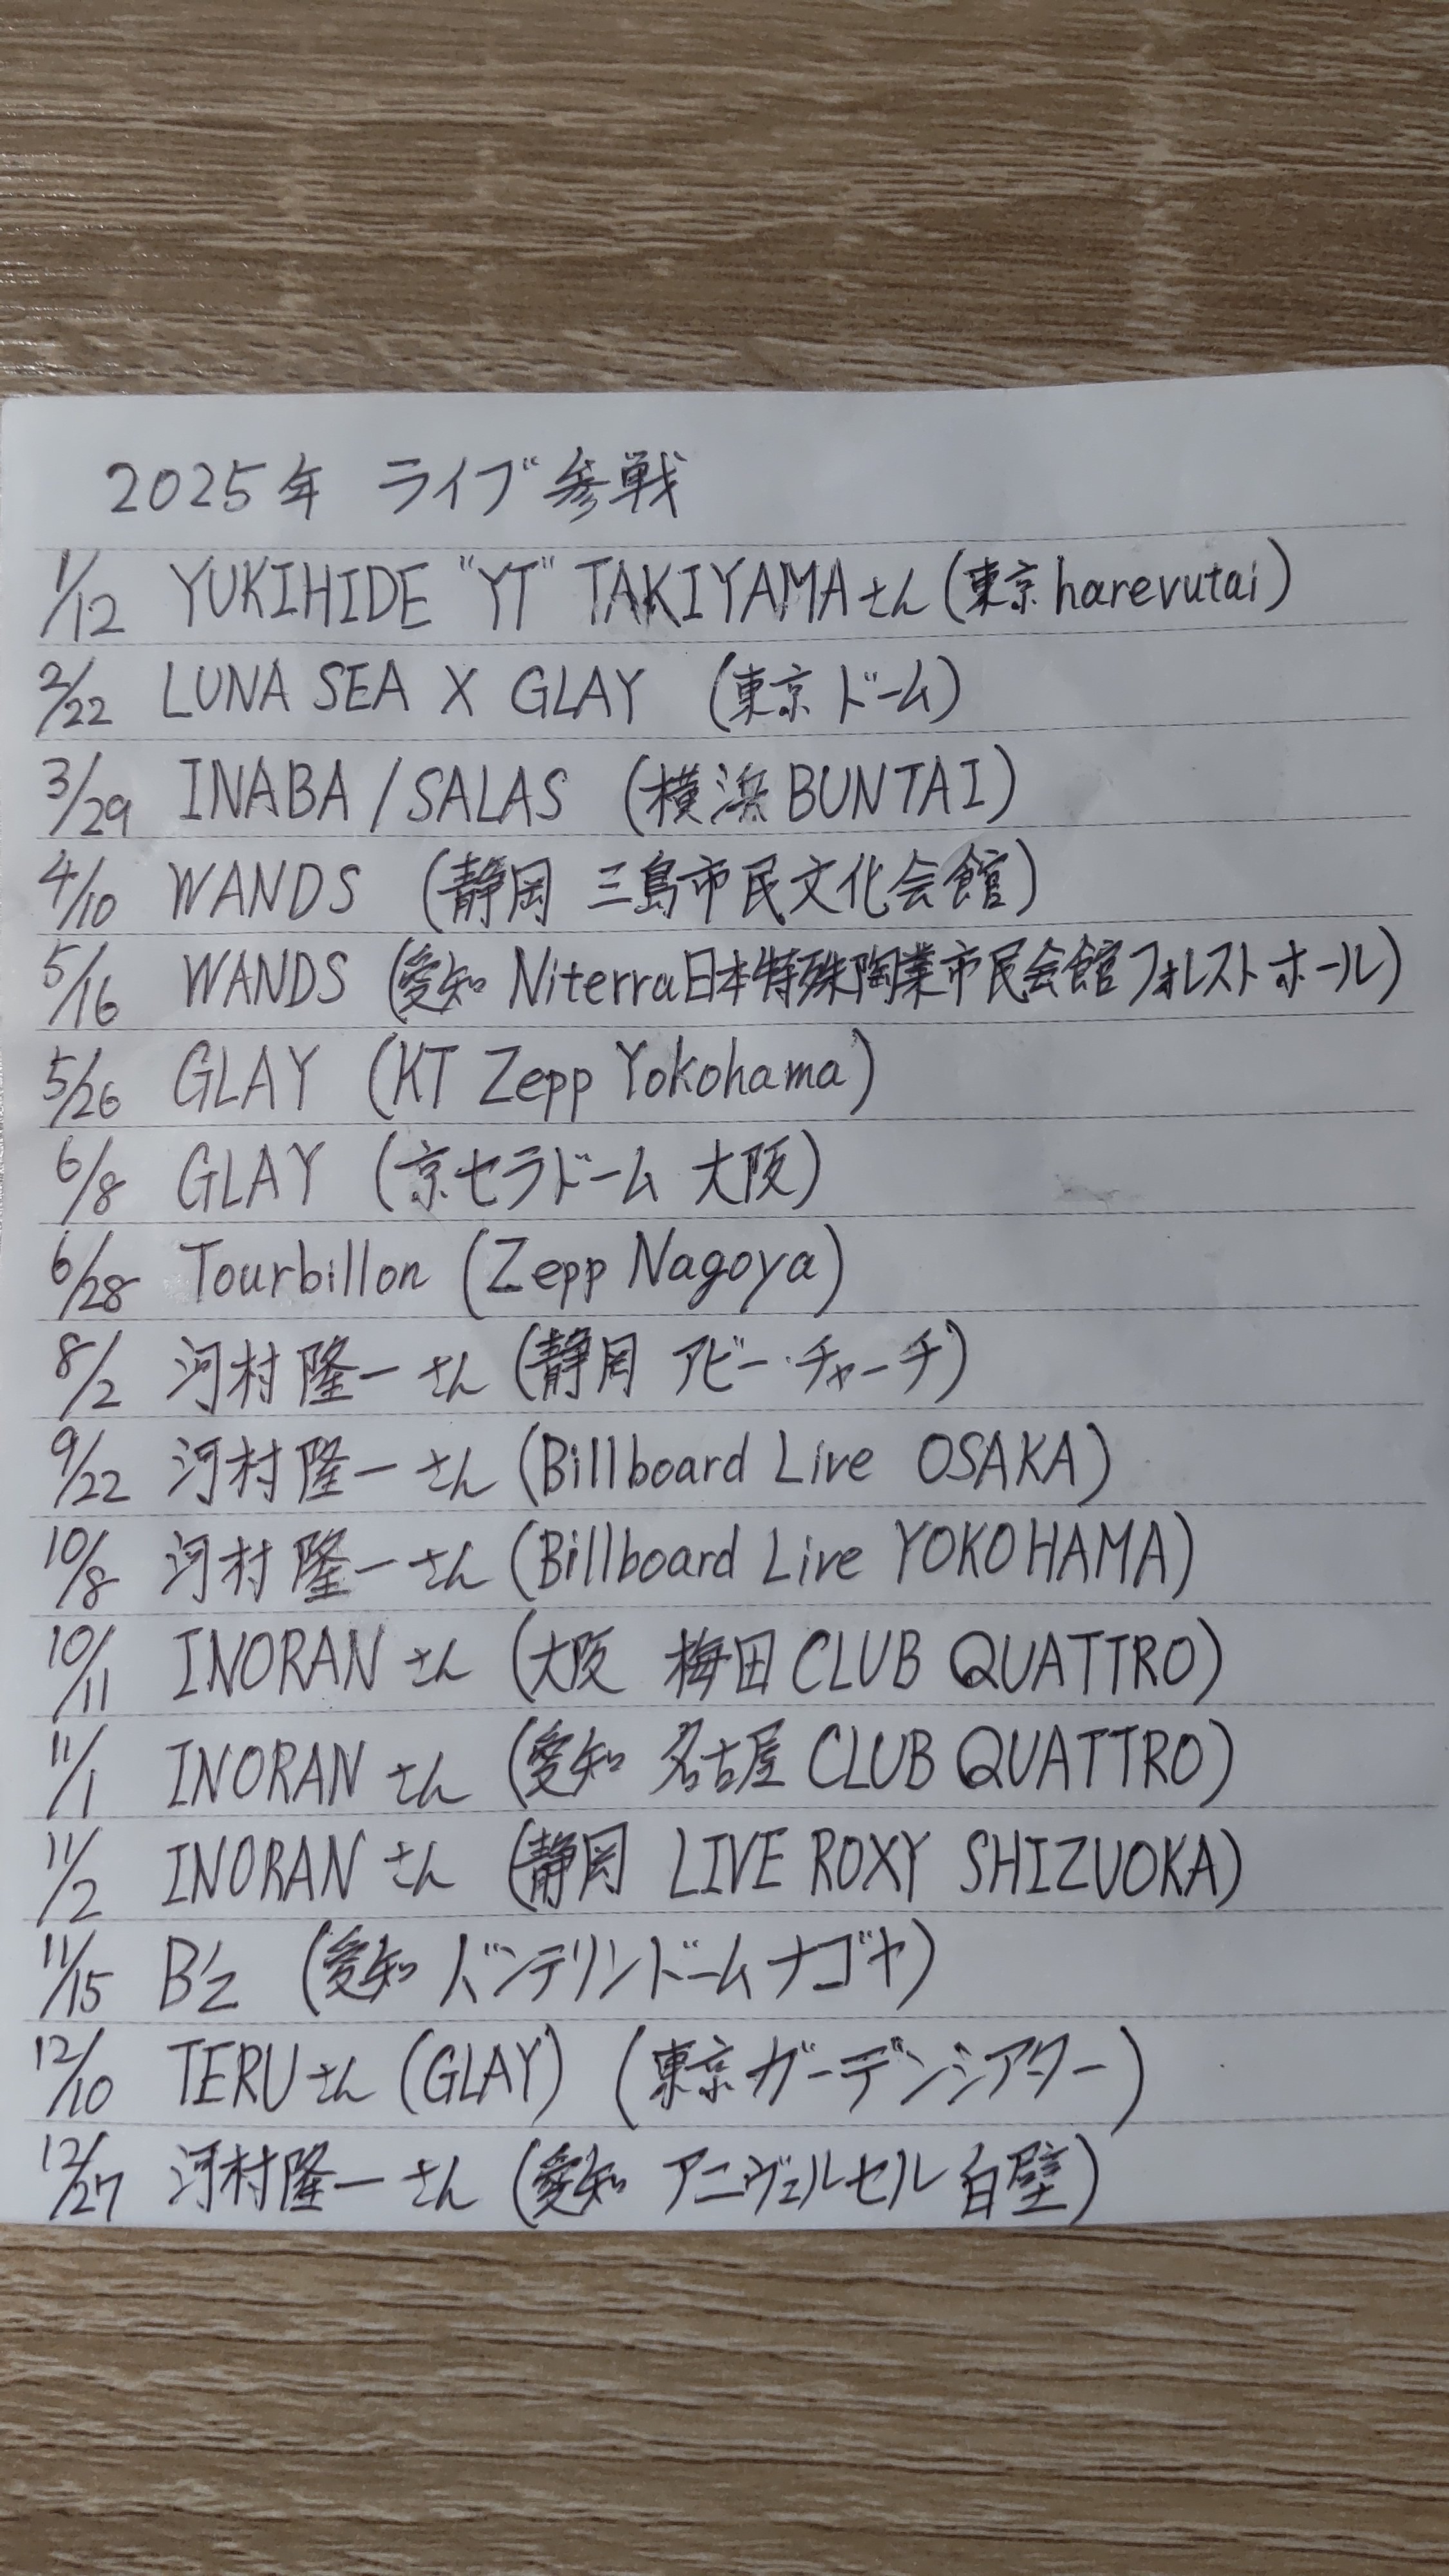 2025年 ライブ参戦
1/12 YUKIHIDE "YT" TAKIYAMAさん (東京 harevutai)
2/22 LUNA SEA X GLAY (東京ドーム)
3/29 INABA / SALAS (横浜BUNTAI)
4/10 WANDS (静岡 三島市民文化会館)
5/16 WANDS (愛知 Niterra日本特殊陶業市民会館フォレストホール)
5/26 GLAY (KT Zepp Yokohama)
6/8 GLAY (京セラドーム 大阪)
6/28 Tourbillon (Zepp Nagoya)
8/2 河村隆一さん (静岡 アビー・チャーチ)
9/22 河村隆一さん (Billboard Live OSAKA)
10/8 河村隆一さん (Billboard Live YOKOHAMA)
10/11 INORANさん (大阪 梅田 CLUB QUATTRO)
11/1 INORANさん (愛知 名古屋 CLUB QUATTRO)
11/2 INORANさん (静岡 LIVE ROXY SHIZUOKA)
11/15 B'z (愛知 バンテリンドームナゴヤ)
12/10 TERUさん (GLAY) (東京ガーデンシアター)
12/27 河村隆一さん (愛知 アニヴェルセル 白壁)